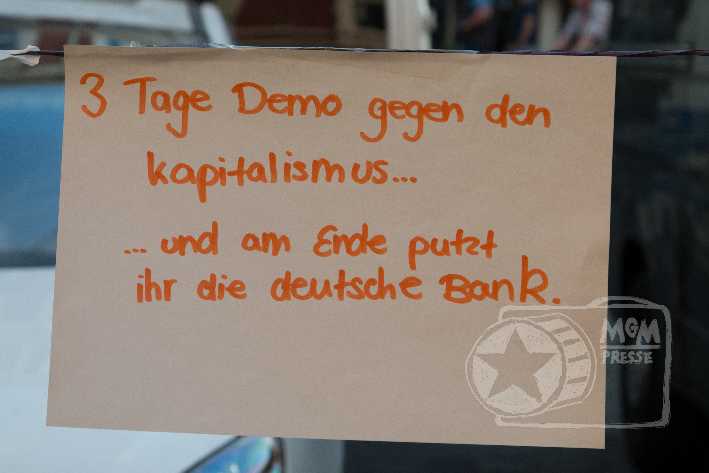 3 Tage Demo gegen den
kapitalismus...
... und am Ende putzt
ihr die deutsche Bank.
MGM
PRESSE